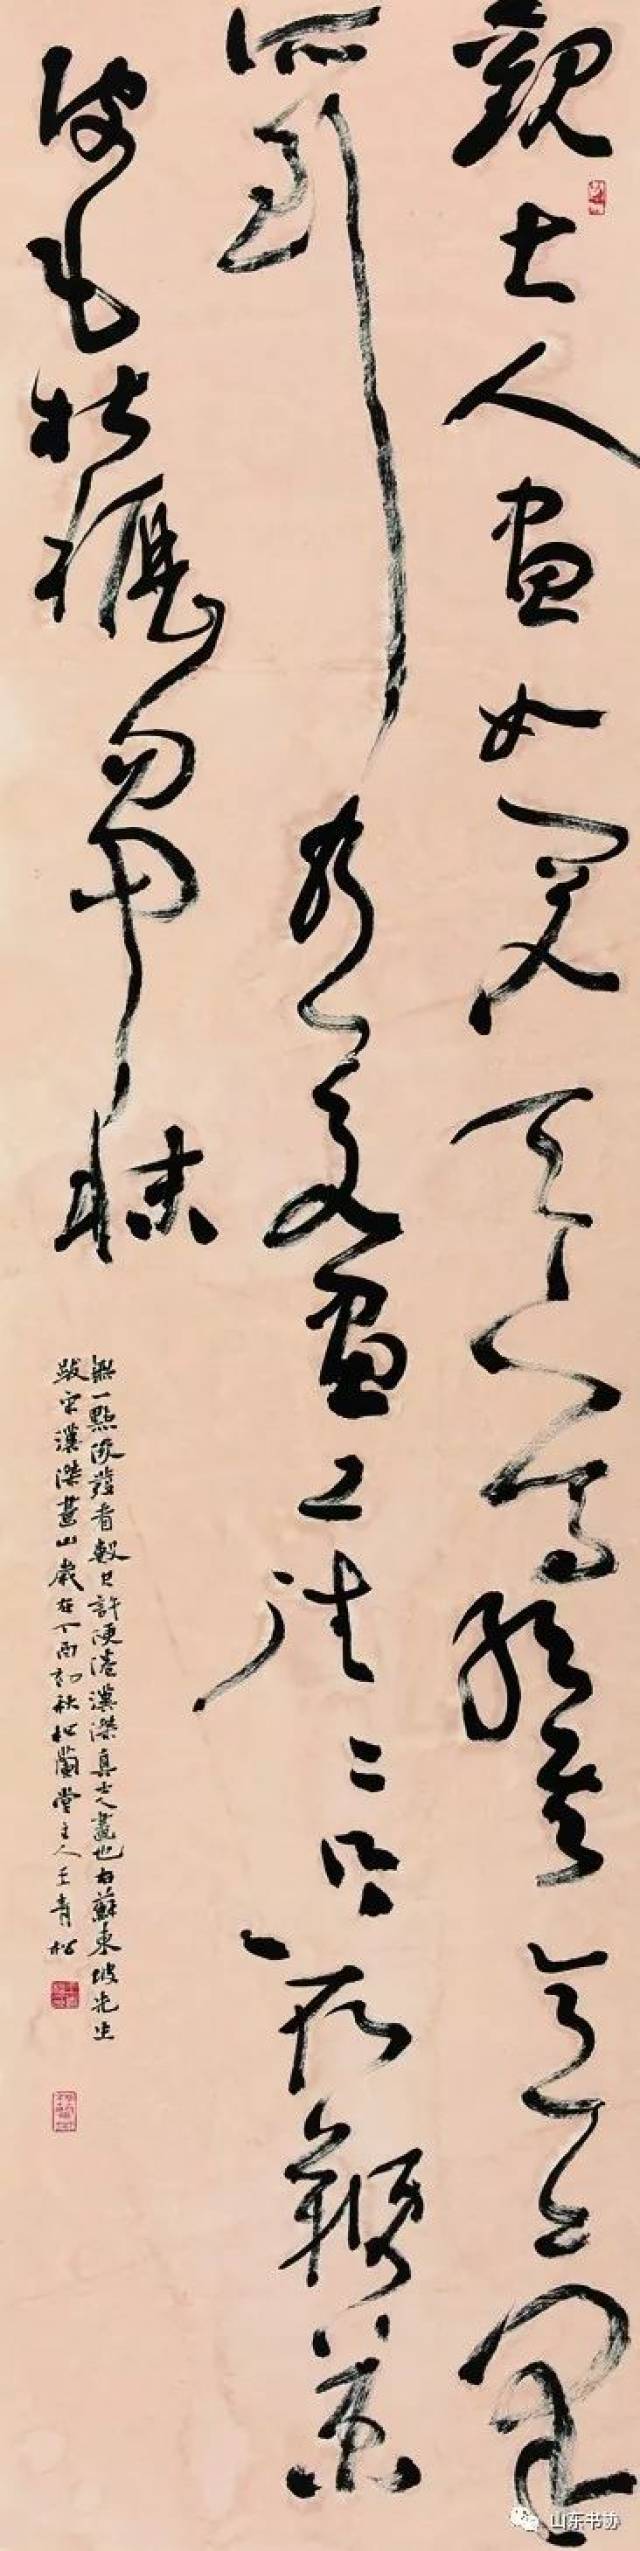 觀士人画如閱天下馬取其意氣
所到乃若画工往々只取鞭策
皮毛槽櫪芻秣
無一點俊發看數尺許便倦漢傑真士人畫也右蘇東坡先生
跋宋漢傑畫山歲在丁酉初秋松蘭堂主人王青松
山东书协